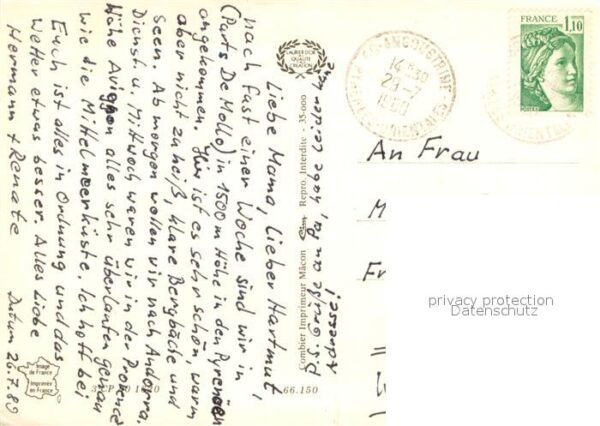 Liebe Mama, Lieber Hartmut,
nach fast einer Woche sind wir in
(Parts De Mollo) in 1500 m Höhe in den Pyrenäen
angekommen. Hier ist es sehr schön, warm
aber nicht zu heiß, klare Bergbäche und
Seen. Ab morgen wollen wir nach Andorra.
Dienst. u. Mittwoch waren wir in der Provence
Nähe Avignon alles sehr überlaufen genau
wie die Mittelmeerküste. Ich hoff bei
Euch ist alles in Ordnung und das
Wetter etwas besser. Alles Liebe
Hermann + Renate Datum 26.7.80
P.S. Grüße an, habe leider
Adresse!
LABEUR D'OR
QUALITÉ
CRÉATION
Combier Imprimeur Mâcon Cim Repro. Interdite - 35-000
66.150
Image de France
Imprimée en France
FRANCE
1,10
14 H 30
1980
PYRENEES ORIENTALES
An Frau
M
Fr
privacy protection
Datenschutz